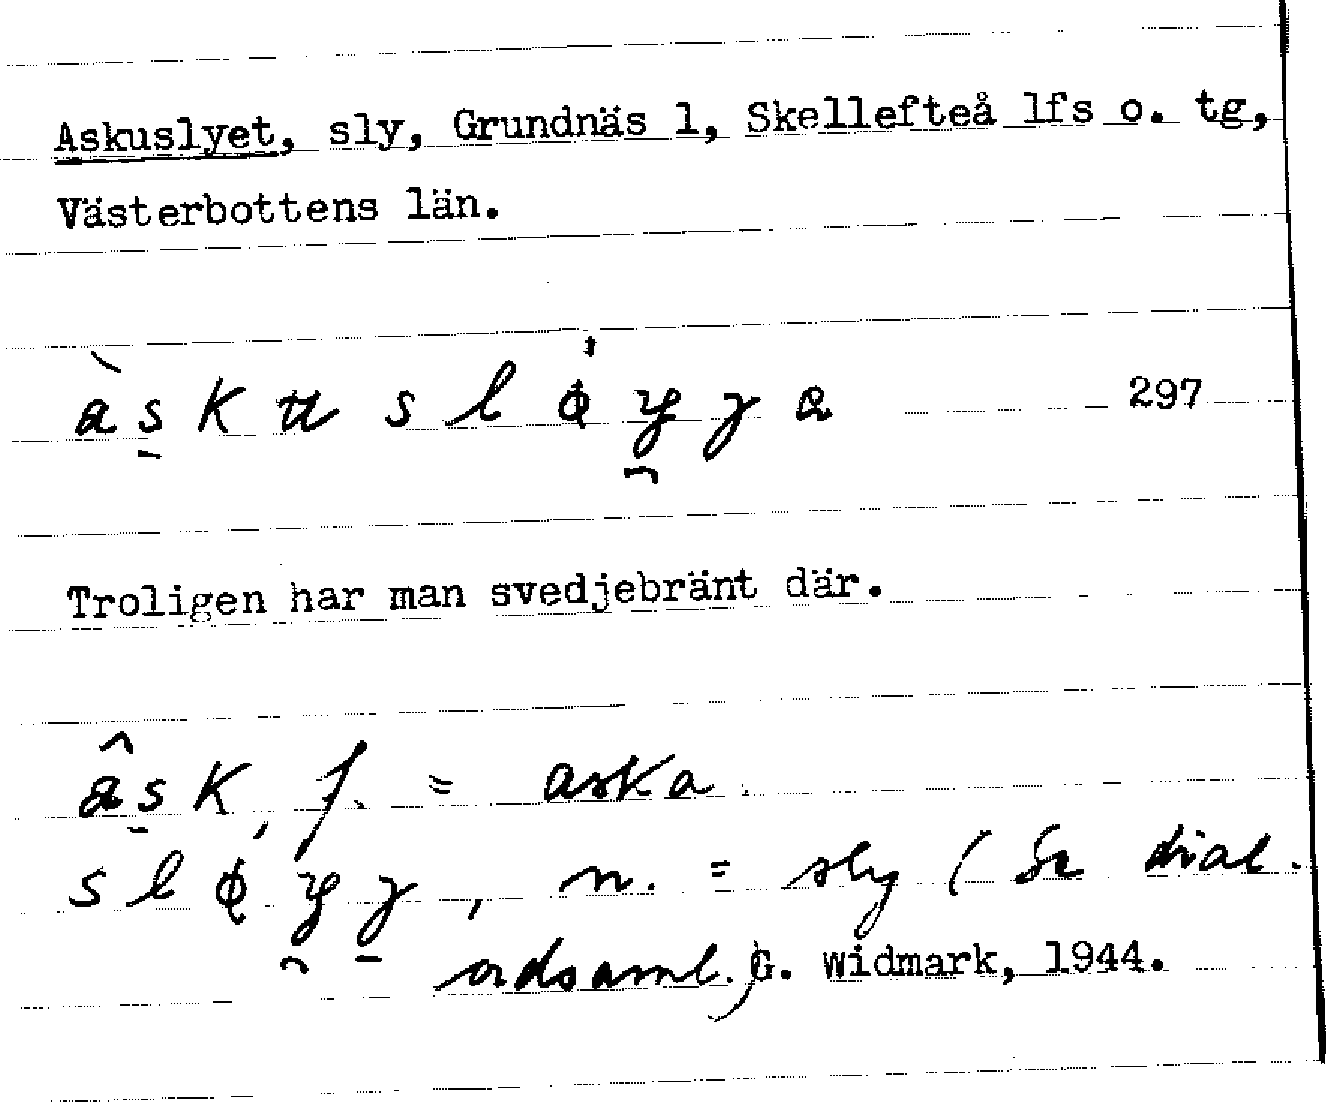 Askuslyet, sly, Grundnäs 1, Skellefteå lfs o. tg,
Västerbottens län.
297
Troligen har man svedjebränt där.
ask, f. = aska.
n. = sly (Se dial.
ordsaml.) G. Widmark, 1944.